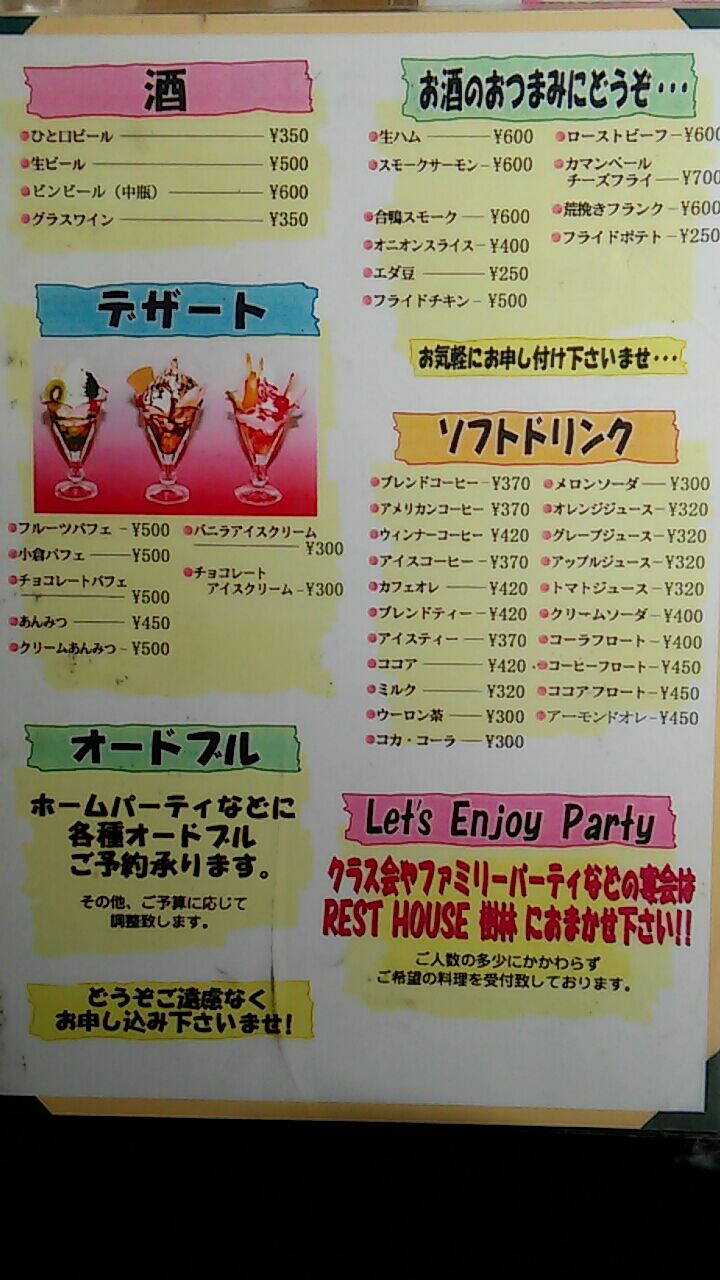 酒
ひと口ビール ¥350
生ビール ¥500
ビンビール（中瓶） ¥600
グラスワイン ¥350
デザート
フルーツパフェ ¥500
小倉パフェ ¥500
チョコレートパフェ
¥500
あんみつ ¥450
クリームあんみつ ¥500
バニラアイスクリーム
¥300
チョコレート
アイスクリーム ¥300
オードブル
ホームパーティなどに
各種オードブル
ご予約承ります。
その他、ご予算に応じて
調整致します。
どうぞご遠慮なく
お申し込み下さいませ!
お酒のおつまみにどうぞ･･･
生ハム ¥600
スモークサーモン ¥600
合鴨スモーク ¥600
オニオンスライス ¥400
エダ豆 ¥250
フライドチキン ¥500
ローストビーフ ¥600
カマンベール
チーズフライ ¥700
荒挽きフランク ¥600
フライドポテト ¥250
お気軽にお申し付け下さいませ･･･
ソフトドリンク
ブレンドコーヒー ¥370
アメリカンコーヒー ¥370
ウィンナーコーヒー ¥420
アイスコーヒー ¥370
カフェオレ ¥420
ブレンドティー ¥420
アイスティー ¥370
ココア ¥420
ミルク ¥320
ウーロン茶 ¥300
コカ・コーラ ¥300
メロンソーダ ¥300
オレンジジュース ¥320
グレープジュース ¥320
アップルジュース ¥320
トマトジュース ¥320
クリームソーダ ¥400
コーラフロート ¥400
コーヒーフロート ¥450
ココアフロート ¥450
アーモンドオレ ¥450
Let's Enjoy Party
クラス会やファミリーパーティなどの宴会は
REST HOUSE 樹林 におまかせ下さい!!
ご人数の多少にかかわらず
ご希望の料理を受付致しております。